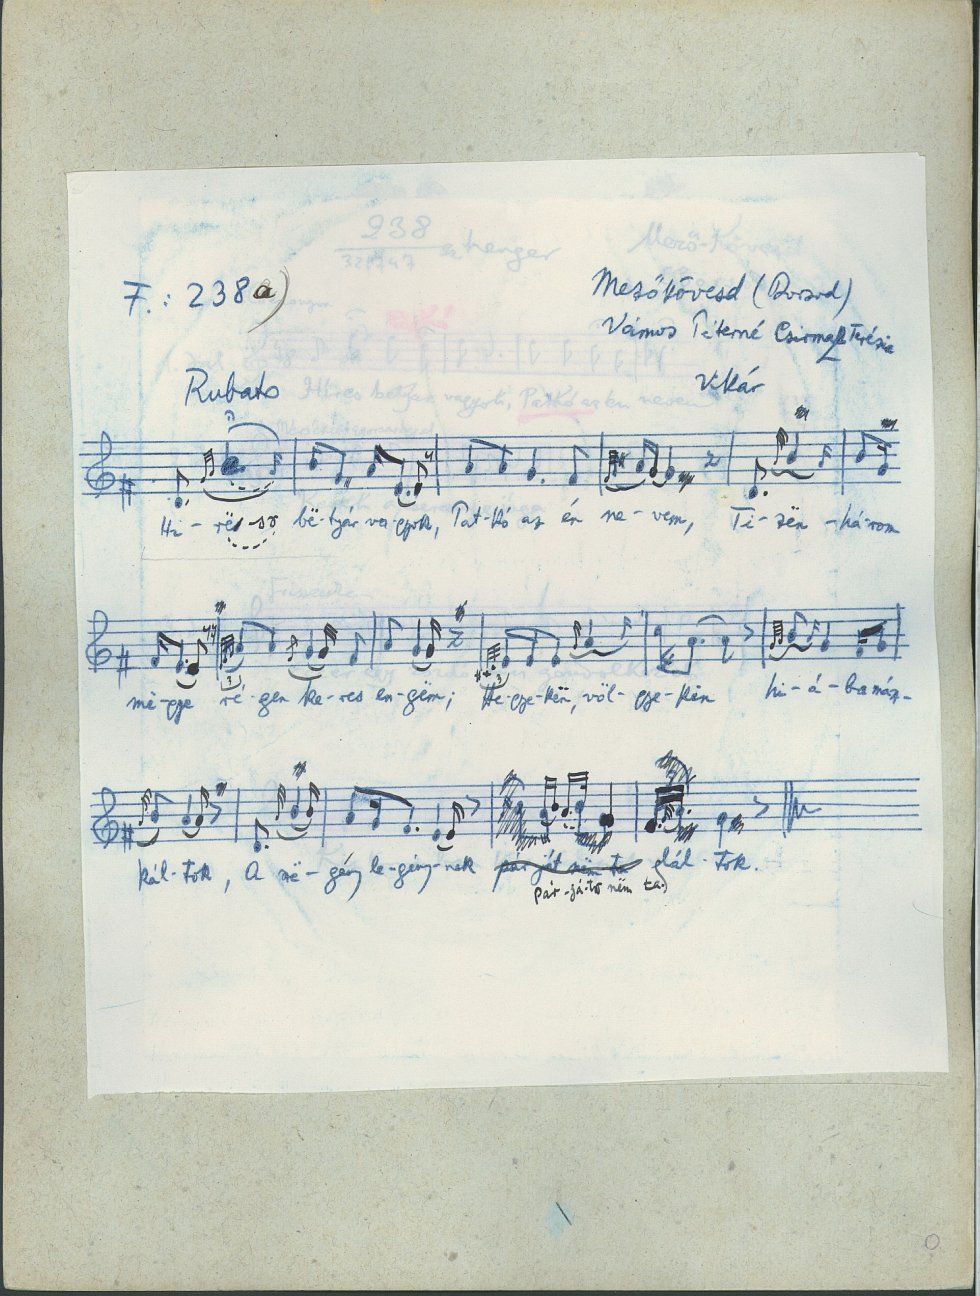 F.: 238 a)
Mezőkövesd (Borsod)
Vámos Péterné Csirmaz Terézia
Vikár
Rubato
Hi - rës-sö bë-tyár va-gyok, Pat-kó az én ne-vem, Ti-zën -há-rom
më-gye ré-gen ke-res en-gëm; He-gye-kën, völ-gye-kën hi-á-ba mász-
kál-tok, A së-gény le-gény-nek pár ját nëm ta lál-tok.
pár-já-tó nëm ta-